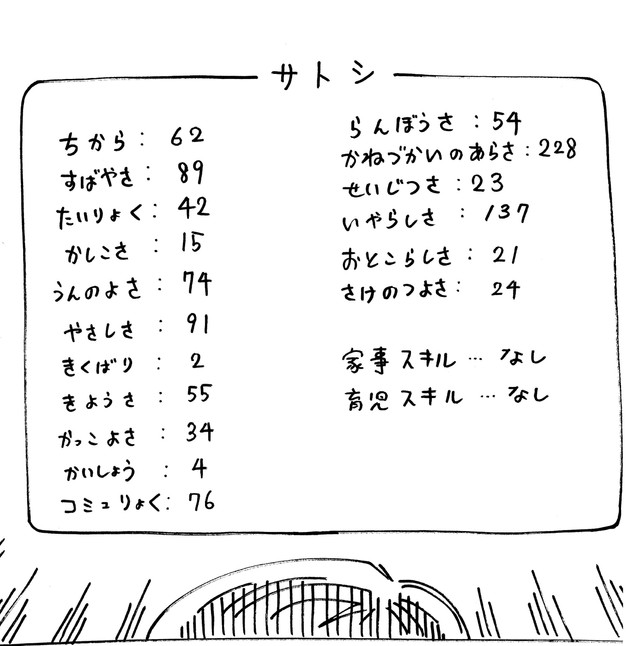 サトシ
ちから: 62
すばやさ: 89
たいりょく: 42
かしこさ: 15
うんのよさ: 74
やさしさ: 91
きくばり: 2
きようさ: 55
かっこよさ: 34
かいしょう: 4
コミュりょく: 76
らんぼうさ: 54
かねづかいのあらさ: 228
せいじつさ: 23
いやらしさ: 137
おとこらしさ: 21
さけのつよさ: 24
家事スキル… なし
育児スキル… なし